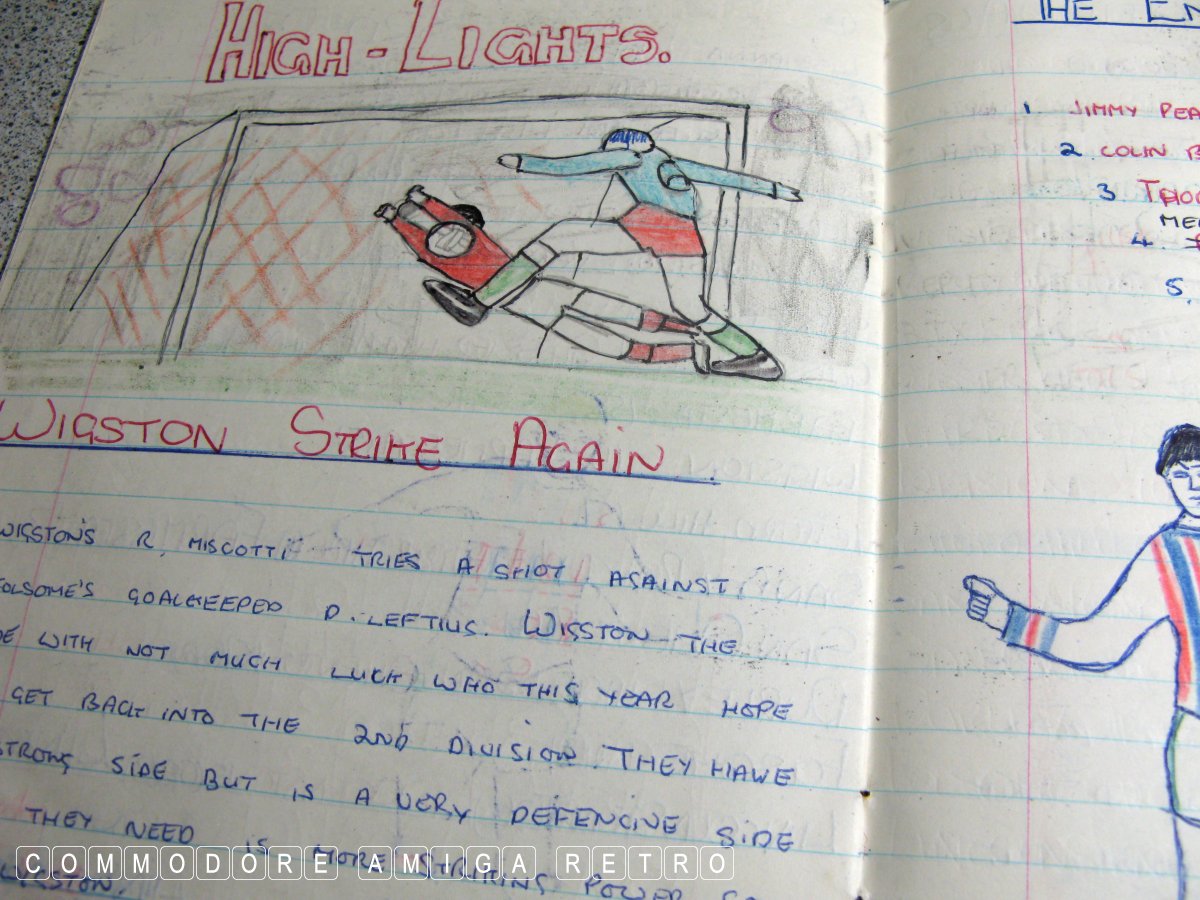 HIGH - LIGHTS.
WIGSTON STRIKE AGAIN
WIGSTON'S R. MISCOTTI TRIES A SHOT AGAINST
FOLSOME'S GOALKEEPED D. LEFTIUS. WIGSTON THE
WITH NOT MUCH LUCK, WHO THIS YEAR HOPE
GET BACK INTO THE 2ND DIVISION. THEY HAWE
STRONG SIDE BUT IS A VERY DEFENCIVE SIDE
THEY NEED IS MORE STRIKING POWER
WIGSTON.
THE EN
1. JIMMY PEA
2. COLIN B
3. TROO
ME
4
5.
COMMODORE AMIGA RETRO